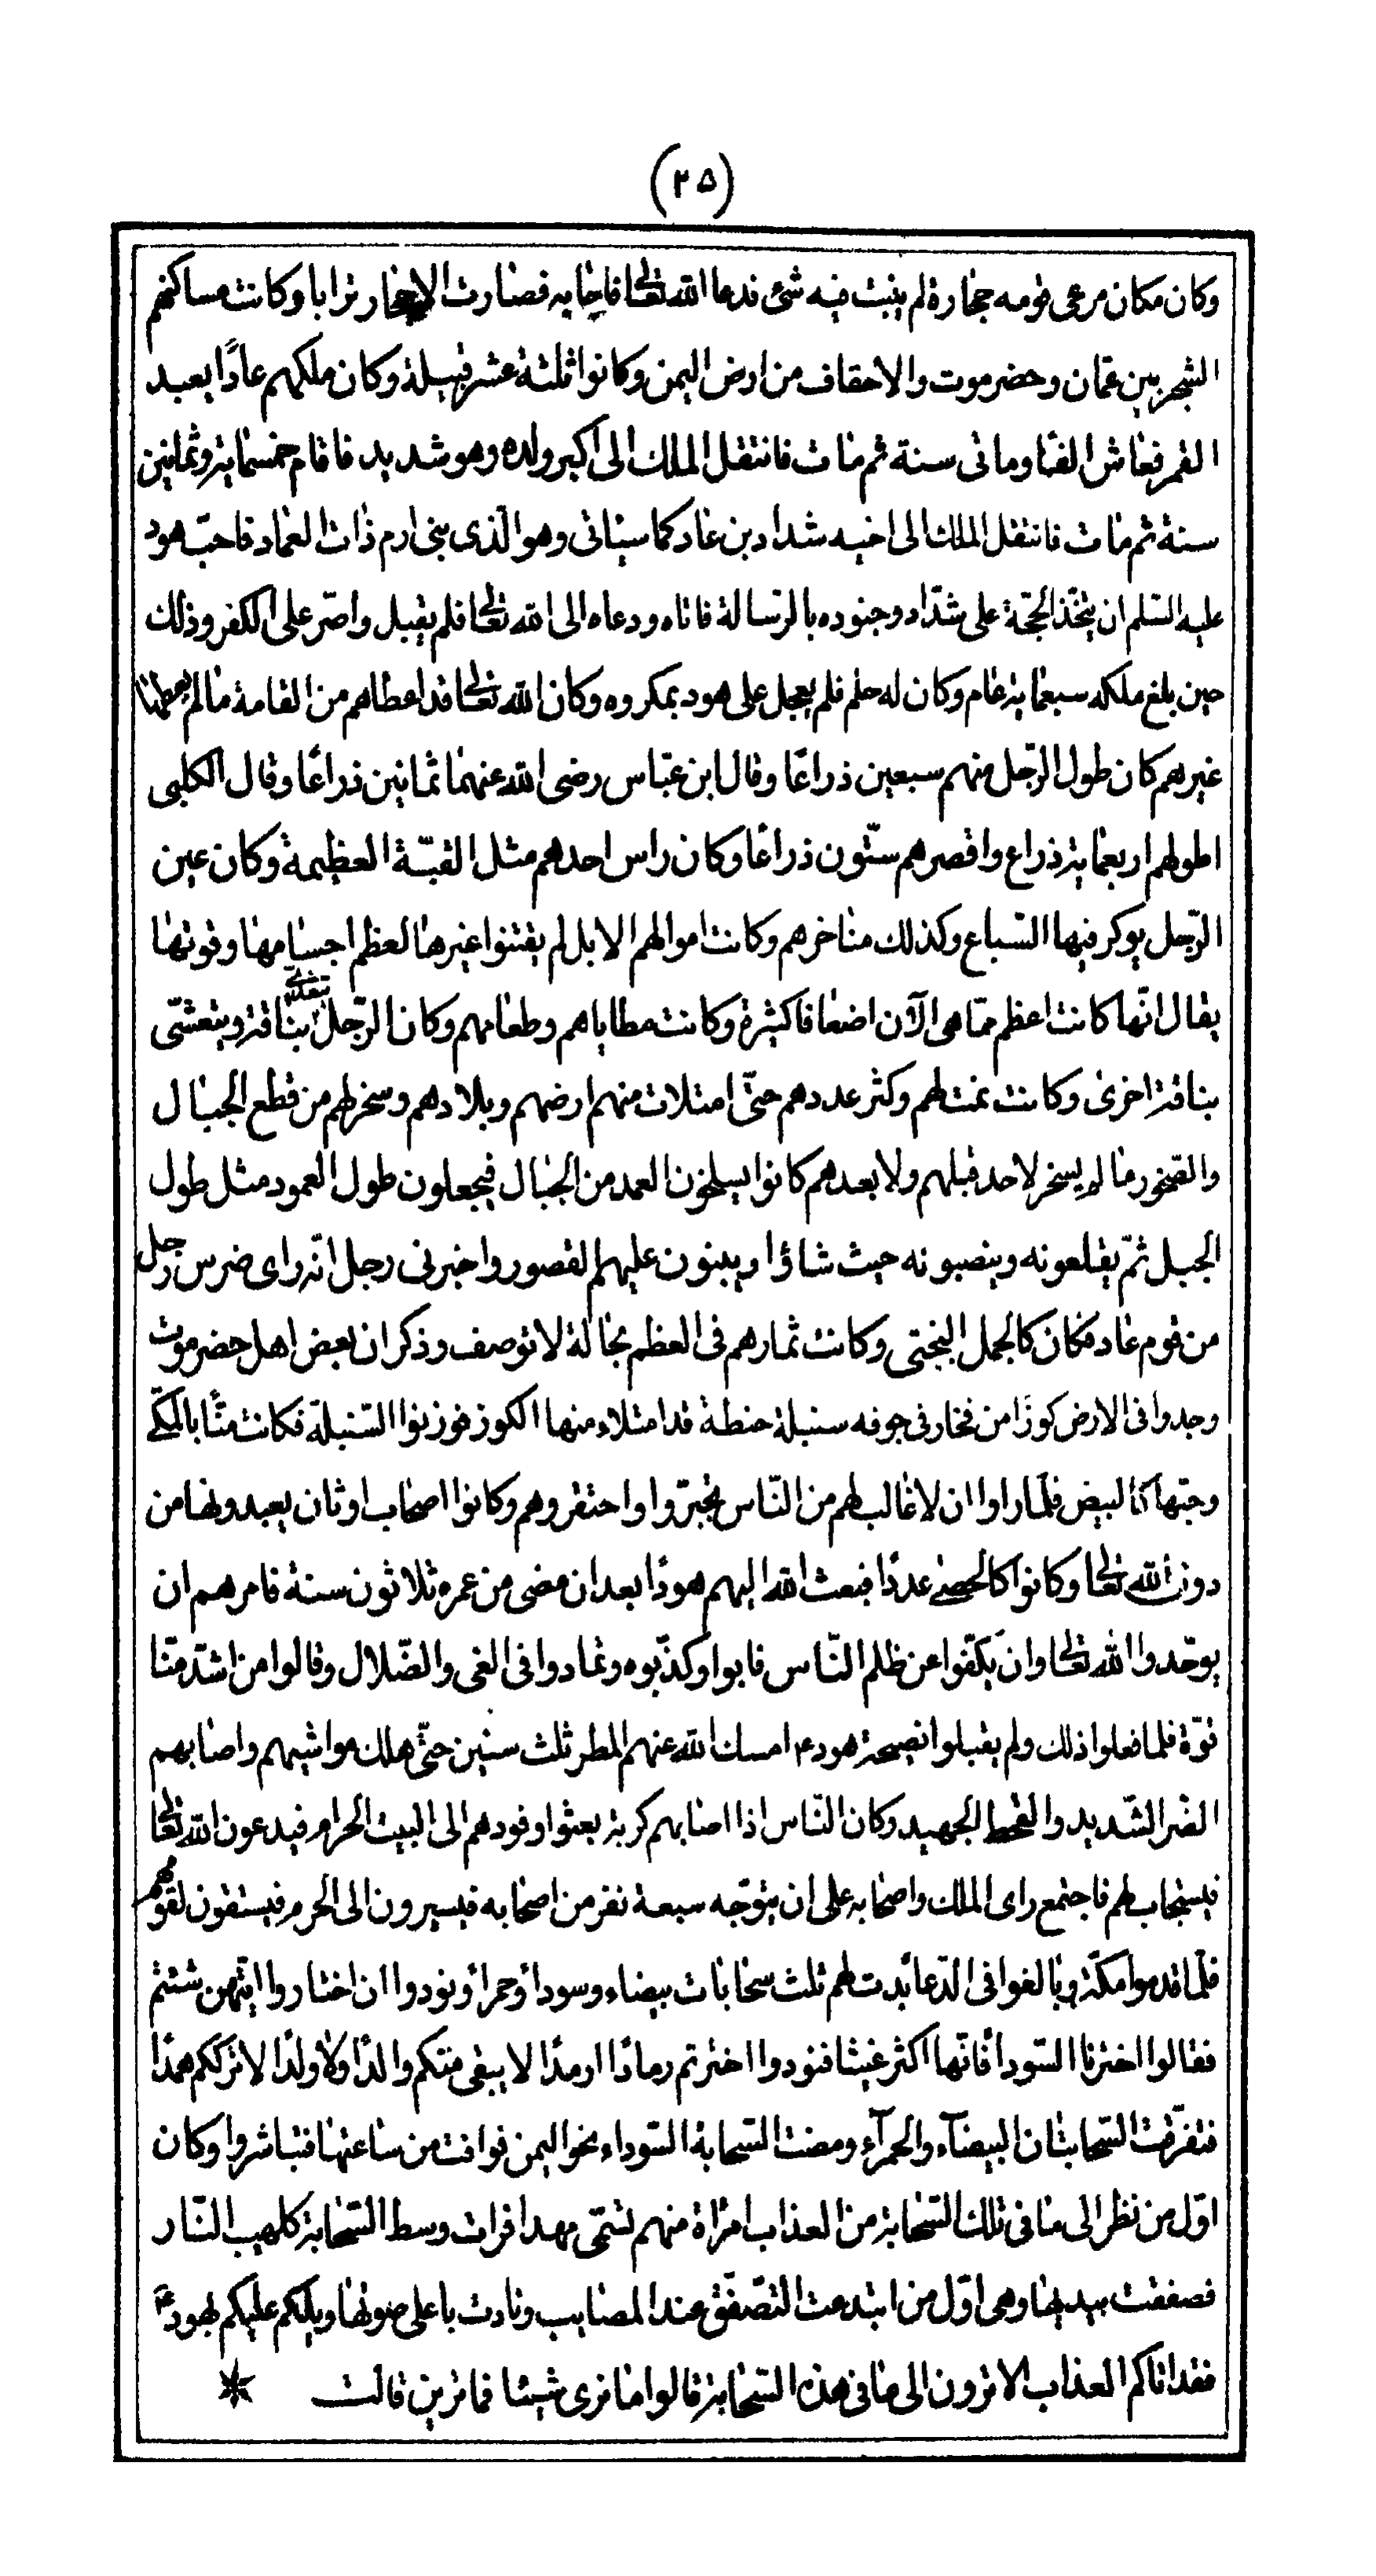 (٢٥)
وكان مكان مرعى قومه حجارة لم ينبت فيه شئ فدعا الله تعالى فاجابه فصارت الاحجار ترابا وكانت مساكنهم
الشجر بين عمّان وحضرموت والاحقاف من ارض اليمن وكانوا ثلثة عشر قبيلة وكان ملكهم عادًا يعبد
القمر فعاش الفا وماتى سنة ثم مات فانتقل الملك الى اكبر ولده وهو شديد فاقام خمسماية وثمانين
سنة ثم مات فانتقل الملك الى اخيه شداد بن عاد كما سياتى وهو الّذى بنى ارم ذات العماد فاحبّ هود
عليه السّلم ان يتّخذ الحجّة على شدّاد وجنوده بالرّسالة فاتاه ودعاه الى الله تعالى فلم يقبل واصرّ على الكفر وذلك
حين بلغ ملكه سبعماية عام وكان له حلم فلم يعجل على هود بمكروه وكان الله تعالى قد اعطاهم من القامة ما لم يعطها
غيرهم كان طول الرّجل منهم سبعين ذراعًا وقال ابن عبّاس رضى الله عنهما ثمانين ذراعًا وقال الكلبى
اطولهم اربعماية ذراع واقصرهم ستّون ذراعًا وكان راس احدهم مثل القبّة العظيمة وكان عين
الرّجل يوكر فيها السّباع وكذلك مناخرهم وكانت اموالهم الابل لم يقتنوا غيرها لعظم اجسامها وقوتها
يقال انّها كانت اعظم ممّا هى الآن اضعافا كثيرة وكانت مطاياهم وطعامهم وكان الرّجل يتغذى بناقة ويتعشّى
بناقة اخرى وكانت نمت لهم وكثر عددهم حتّى امتلات منهم ارضهم وبلادهم وسخر لهم من قطع الجبال
والصّخور ما لم يسخر لاحد قبلهم ولا بعدهم كانوا يسلخون العمد من الجبال فيجعلون طول العمود مثل طول
الجبل ثمّ يقلعونه وينصبونه حيث شاؤا ويبنون عليهم القصور واخبرنى رجل انّه راى ضرس رجل
من قوم عاد فكان كالجمل البختى وكانت ثمارهم فى العظم بحالة لا توصف وذكر ان بعض اهل حضرموت
وجدوا فى الارض كوزًا من فخار فى جوفه سنبلة حنطة قد امتلاء منها الكوز فوزنوا السّنبلة فكانت منًّا بالمكّے
وحبّها كالبيض فلمّا راوا ان لا غالب لهم من النّاس تجبّروا واحتقروهم وكانوا اصحاب اوثان يعبدونها من
دون الله تعالى وكانوا كالحصے عددًا فبعث الله اليهم هودًا بعد ان مضى من عمره ثلاثون سنة فامرهم ان
يوحّدوا الله تعالى وان يكفّوا عن ظلم النّاس فابوا وكذّبوه وتمادوا فى الغى والضّلال وقالوا من اشدّ منّا
قوّة فلما فعلوا ذلك ولم يقبلوا نصيحة هود ع امسك الله عنهم المطر ثلث سنين حتّى هلك مواشيهم واصابهم
الضّر الشّديد والقحط الجهيد وكان النّاس اذا اصابهم كربة بعثوا وفودهم الى البيت الحرام فيدعون الله تعالى
فيستجاب لهم فاجتمع راى الملك واصحابه على ان يتوجّه سبعة نفر من اصحابه فيسيرون الى الحرم فيستقون لقومهم
فلمّا قدموا مكّة وبالغوا فى الدّعا بدت لهم ثلث سحابات بيضاء وسوداء وحمراء ونودوا ان اختاروا ايّهن شئتم
فقالوا اخترنا السّوداء فانّها اكثر غيثا فنودوا اخترتم رمادًا ارمدًا لا يبقى منكم والدًا ولا ولدًا لا تركّكم همدًا
فتفرّقت السّحابتان البيضآء والحمرآء ومضت السّحابة السّوداء نحو اليمن فوافت من ساعتها فتباشروا وكان
اوّل من نظر الى ما فى تلك السّحابة من العذاب امراة منهم تسمّى مهد افرات وسط السّحابة كلهيب النّار
فصفقت بيديها وهى اوّل من ابتدعت التصّفّق عند المصايب ونادت باعلى صوتها ويلكم عليكم بهود ع
فقد اتاكم العذاب الا ترون الى ما فى هذه السّحابة قالوا ما نرى شيئا فما ترين قالت *